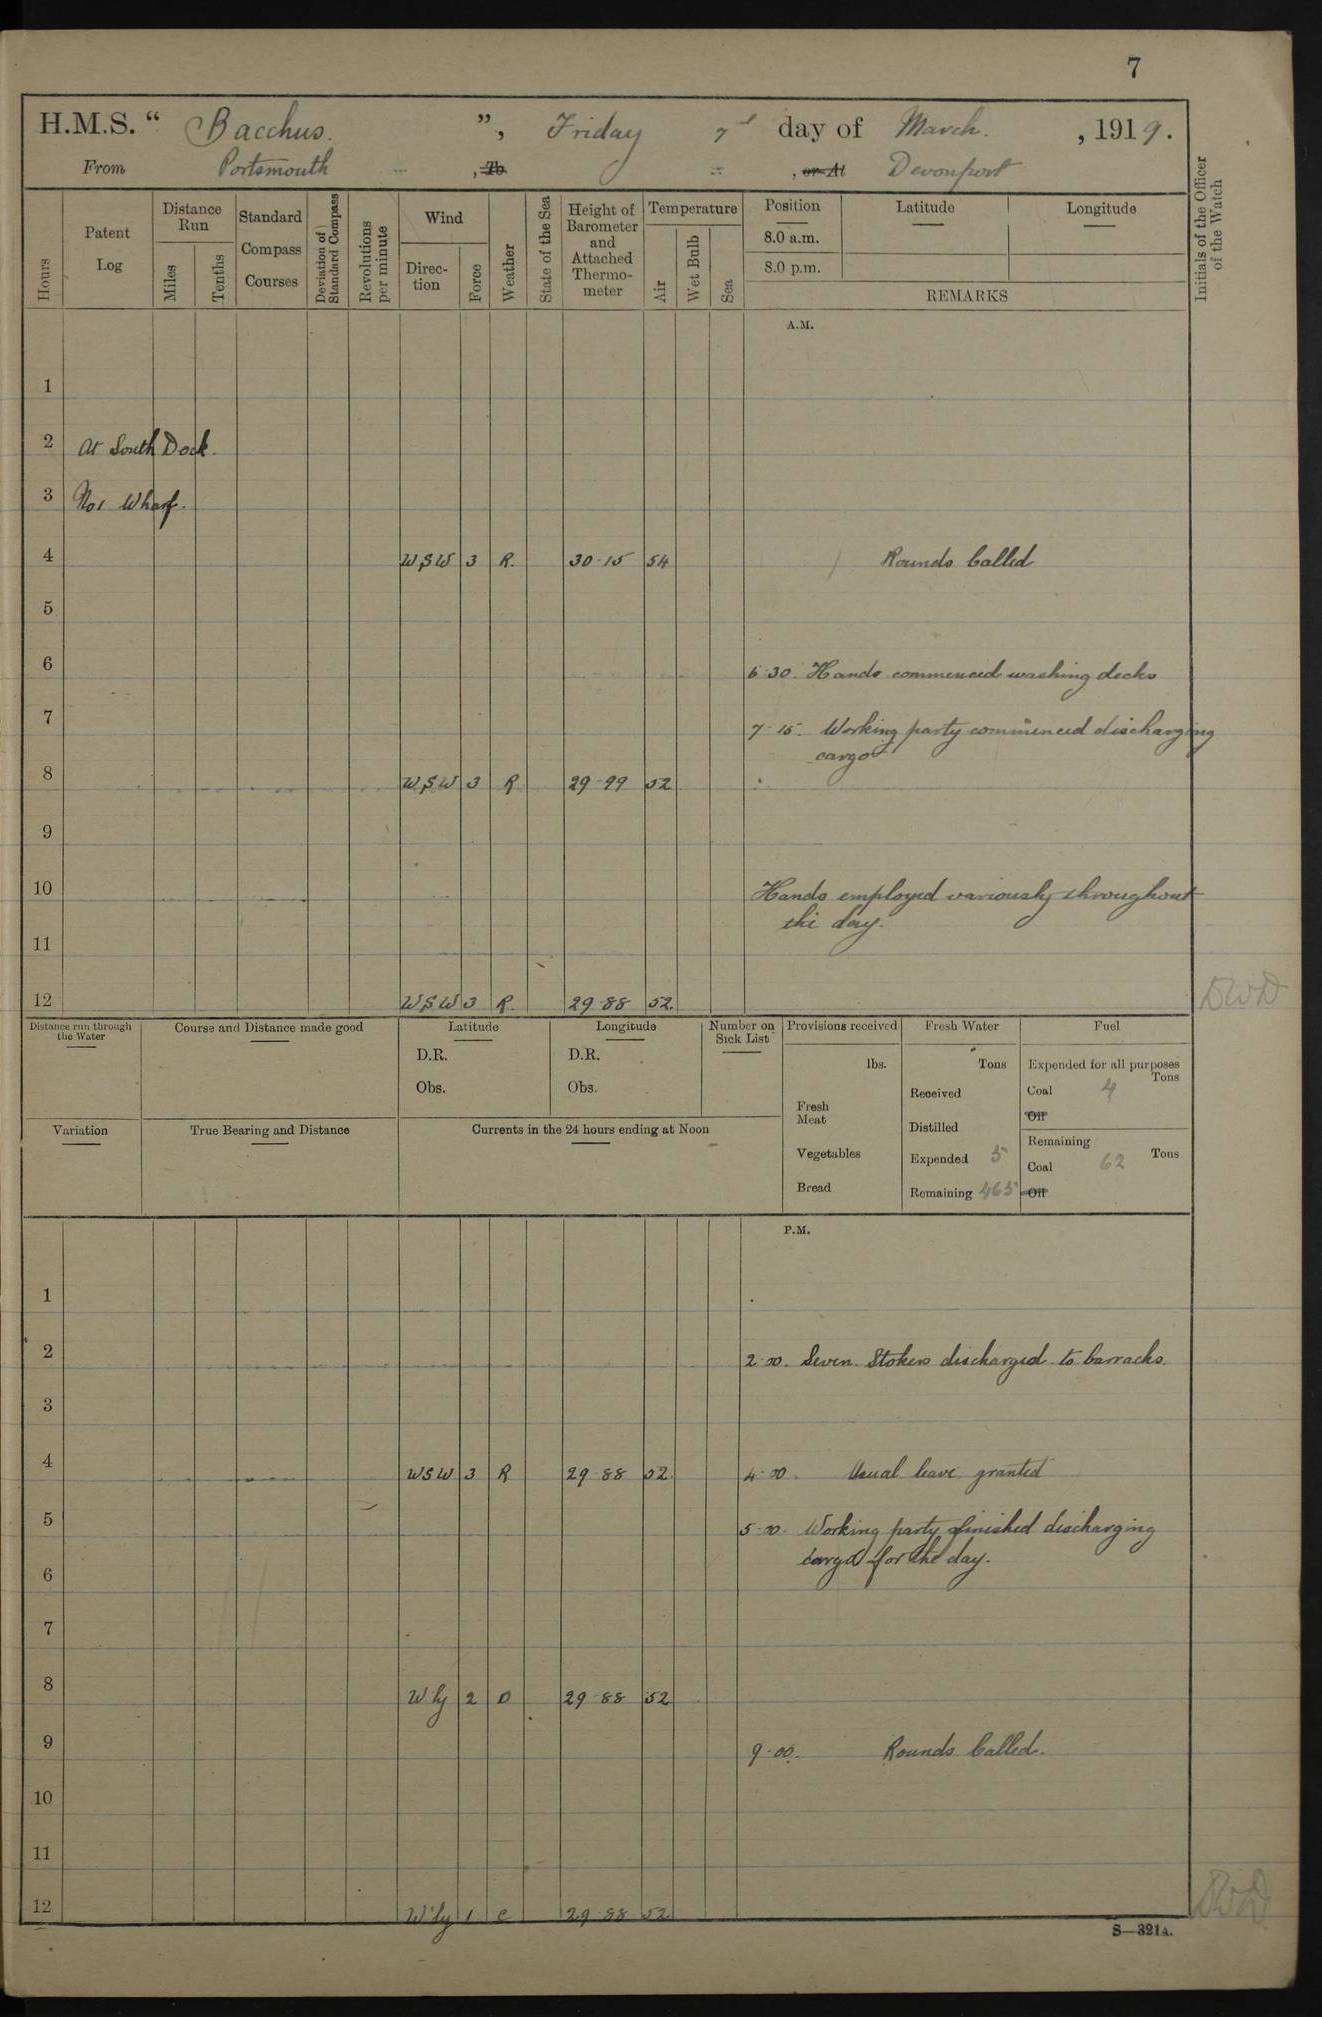 7
H.M.S. “ Bacchus. ”, Friday 7th day of March. , 1919.
From Portsmouth , To , or At Devonport
Hours
Patent Log
Distance Run
Miles
Tenths
Standard Compass Courses
Deviation of Standard Compass
Revolutions per minute
Wind
Direction
Force
Weather
State of the Sea
Height of Barometer and Attached Thermometer
Temperature
Air
Wet Bulb
Sea
Position
8.0 a.m.
8.0 p.m.
Latitude
Longitude
REMARKS
Initials of the Officer of the Watch
A.M.
1
2 At South Dock.
3 No1 Wharf.
4 WSW 3 R. 30·15 54 Rounds Called
5
6 6·30. Hands commenced washing decks
7 7·15. Working party commenced discharging
cargo
8 WSW 3 R 29·99 52
9
10 Hands employed variously throughout
the day.
11
12 WSW 3 R. 29·88 52. DWD
Distance run through the Water
Course and Distance made good
Latitude
D.R.
Obs.
Longitude
D.R.
Obs.
Number on Sick List
Provisions received
lbs.
Fresh Meat
Vegetables
Bread
Fresh Water
Tons
Received
Distilled
Expended 5
Remaining 465
Fuel
Expended for all purposes
Tons
Coal 4
Oil
Remaining
Tons
Coal 62
Oil
Variation
True Bearing and Distance
Currents in the 24 hours ending at Noon
P.M.
1
2 2·00. Seven Stokers discharged to barracks.
3
4 WSW 3 R 29·88 52. 4·00. Usual leave granted
5 5·00. Working party finished discharging
cargo for the day.
6
7
8 W'ly 2 O 29·88 52
9 9·00. Rounds Called.
10
11
12 W'ly 1 c 29·88 52 DWD
S—321A.